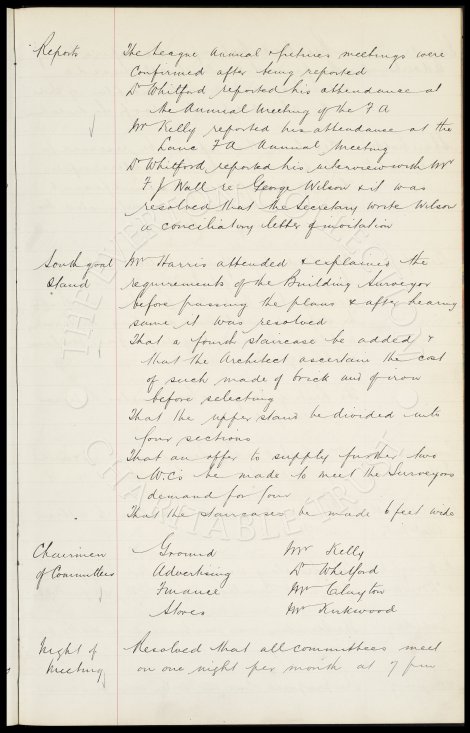 Reports The League Annual & fixtures meetings were
confirmed after being reported
Dr Whitford reported his attendance at
the Annual Meeting of the F A
Mr Kelly reported his attendance at the
Lanc F A Annual Meeting
Dr Whitford reported his interview with Mr
F J Wall re George Wilson & it was
resolved that the Secretary write Wilson
a conciliatory letter of invitation
South goal Mr Harris attended & explained the
Stand requirements of the Building Surveyor
before passing the plans & after hearing
same it was resolved
That a fourth staircase be added &
that the Architect ascertain the cost
of such made of brick and of iron
before selecting
That the upper stand be divided into
four sections
That an offer to supply further two
W.Cs be made to meet the Surveyors
demand for four
That the staircases be made 6 feet wide
Chairmen Ground Mr Kelly
of Committees Advertising Dr Whitford
Finance Mr Clayton
Stores Mr Kirkwood
Night of Resolved that all committees meet
Meeting on one night per month at 7 pm
THE EVERTON COLLECTION
CHARITABLE TRUST